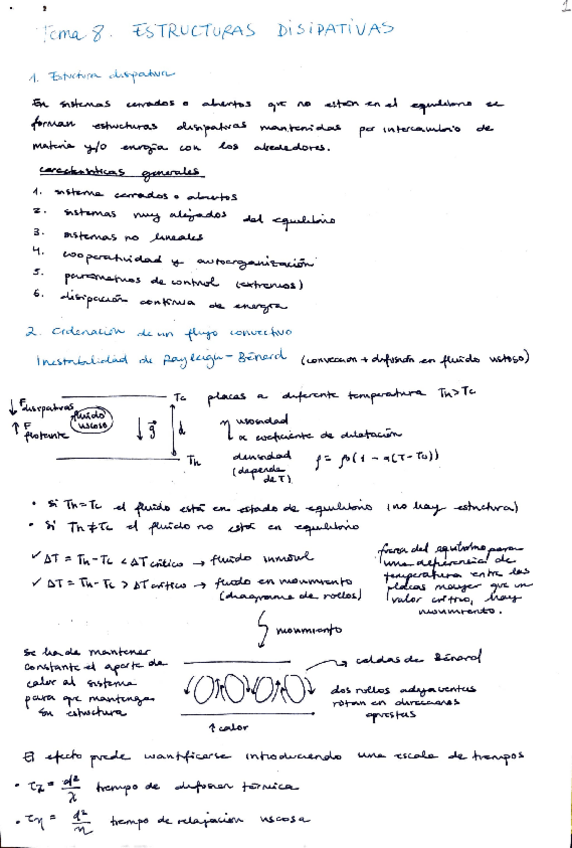 1
Tema 8. ESTRUCTURAS DISIPATIVAS
1. Estructura disipativa
En sistemas cerrados o abiertos que no están en el equilibrio se
forman estructuras disipativas mantenidas por intercambio de
materia y/o energía con los alrededores.
características generales
1. sistema cerrados o abiertos
2. sistemas muy alejados del equilibrio
3. sistemas no lineales
4. cooperatividad y autoorganización
5. parámetros de control (externos)
6. disipación continua de energía
2. Ordenación de un flujo convectivo
Inestabilidad de Rayleigh-Bénard (convección + difusión en fluido viscoso)
↓ F disipativas
↑ F flotante
fluido viscoso
↓ g⃗
d
Tc
Th
placas a diferente temperatura Th > Tc
η viscosidad
α coeficiente de dilatación
densidad ρ = ρ0 (1 - α(T - T0))
(depende
de T)
• Si Th = Tc el fluido está en estado de equilibrio (no hay estructura)
• Si Th ≠ Tc el fluido no está en equilibrio
✓ ΔT = Th - Tc < ΔT crítico → fluido inmóvil
✓ ΔT = Th - Tc > ΔT crítico → fluido en movimiento
(diagrama de rollos)
fuera del equilibrio para
una diferencia de
temperatura entre las
placas mayor que un
valor crítico, hay
movimiento.
movimiento
se ha de mantener
constante el aporte de
calor al sistema
para que mantenga
su estructura
→ celdas de Bénard
dos rollos adyacentes
rotan en direcciones
opuestas
↑ calor
El efecto puede cuantificarse introduciendo una escala de tiempos
• τχ = d²/χ tiempo de difusión térmica
• τη = d²/η tiempo de relajación viscosa